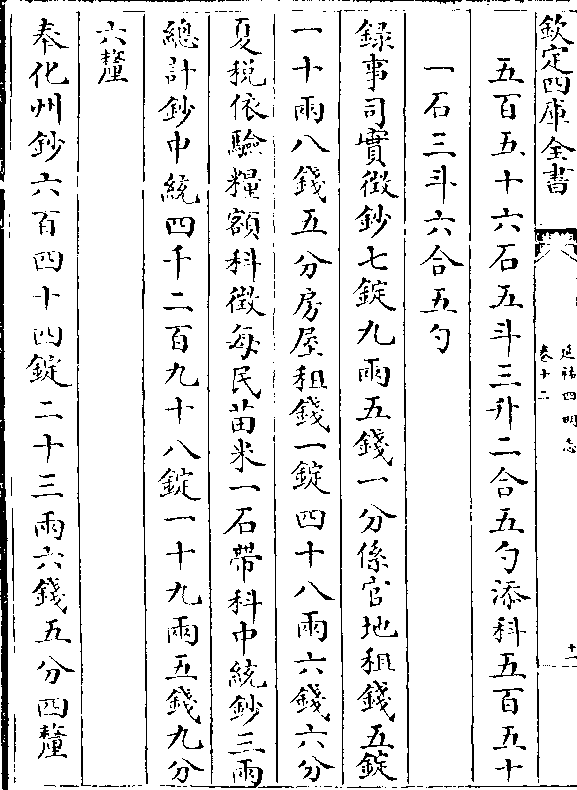 欽定四庫全書
延祐四明志
卷十二
十二
五百五十六石五斗三升二合五勺添科五百五十
一石三斗六合五勺
録事司實徴鈔七錠九兩五錢一分係官地租錢五錠
一十兩八錢五分房屋租錢一錠四十八兩六錢六分
夏税依驗糧額科徴每民苗米一石帶科中統鈔三兩
總計鈔中統四千二百九十八錠一十九兩五錢九分
六釐
奉化州鈔六百四十四錠二十三兩六錢五分四釐